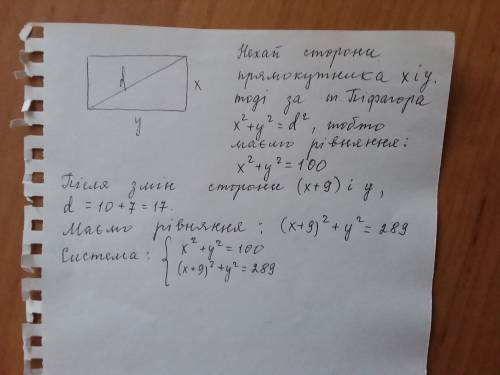 Нехай сторони
прямокутника x і y.
d
x
y
тоді за т. Піфагора
x² + y² = d², тобто
маємо рівняння:
x² + y² = 100
Після змін сторони (x+9) і y,
d = 10 + 7 = 17.
Маємо рівняння: (x+9)² + y² = 289
Система: { x² + y² = 100
(x+9)² + y² = 289